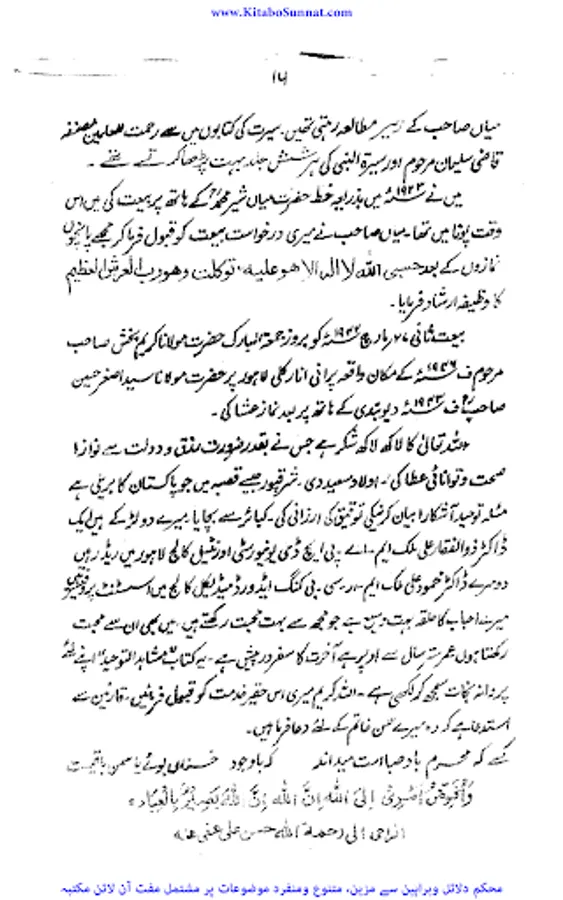 www.KitaboSunnat.com
۱۶
میاں صاحب کے زیر مطالعہ رہتی تھیں۔ سیرت کی کتابوں میں سے رحمت للعلمین مصنفہ
قاضی سلیمان مرحوم اور سیرۃ النبی کی ہر شش جلد بہت پڑھا کرتے تھے۔
میں نے ۱۹۲۳ء میں بذریعہ خط حضرت میاں شیر محمدؒ کے ہاتھ پر بیعت کی میں اس
وقت پونا میں تھا۔ میاں صاحب نے میری درخواست بیعت کو قبول فرما کر مجھے پانچوں
نمازوں کے بعد حسبی الله لا الہ الا هو علیہ توکلت وهو رب العرش العظیم
کا وظیفہ ارشاد فرمایا۔
بیعت ثانی ۲۷ مارچ کو بروز جمعۃ المبارک حضرت مولانا کریم بخش صاحب
مرحوم ف ۱۹۴۶ء کے مکان واقعہ پرانی انارکلی لاہور پر حضرت مولانا سید اصغر حسین
صاحبؒ ف دیوبندی کے ہاتھ پر بعد نماز عشا کی۔
اللہ تعالیٰ کا لاکھ لاکھ شکر ہے جس نے بقدر ضرورت رزق و دولت سے نوازا
صحت و توانائی عطا کی۔ اولاد سعید دی۔ شرقپور جیسے قصبہ میں جو پاکستان کا بریلی ہے
مسئلہ توحید آشکارا بیان کرنیکی توفیق کی ارزانی کی۔ کبائر سے بچایا۔ میرے دو لڑکے ہیں ایک
ڈاکٹر ذوالفقار علی ملک ایم۔اے۔ پی ایچ ڈی یونیورسٹی اورنٹیل کالج لاہور میں ریڈر ہیں
دوسرے ڈاکٹر محمود علی ملک ایم۔آر۔سی۔پی کنگ ایڈورڈ میڈیکل کالج میں اسسٹنٹ پروفیسر
میرے احباب کا حلقہ بہت وسیع ہے جو مجھ سے بہت محبت رکھتے ہیں، میں بھی ان سے محبت
رکھتا ہوں عمر سال سے اوپر ہے آخرت کا سفر درپیش ہے۔ یہ کتاب مشاہد التوحید اپنے لئے
پروانہ نجات سمجھ کر لکھی ہے۔ اللہ کریم میری اس حقیر خدمت کو قبول فرمائیں۔ قارئین سے
استدعا ہے کہ وہ میرے حسن خاتم کے لئے دعا فرمائیں۔
کسے کہ محرم باد صبا است میداند کہ باوجود خزاں بوئے یاسمن باقیست
وَأُفَوِّضُ أَمْرِىْ إِلَى اللهِ إِنَّ اللهَ بَصِيْرٌ بِالْعِبَادِ
الراجی الی رحمۃ اللہ حسن علی عفی عنہ
محکم دلائل وبراہین سے مزین، متنوع ومنفرد موضوعات پر مشتمل مفت آن لائن مکتبہ